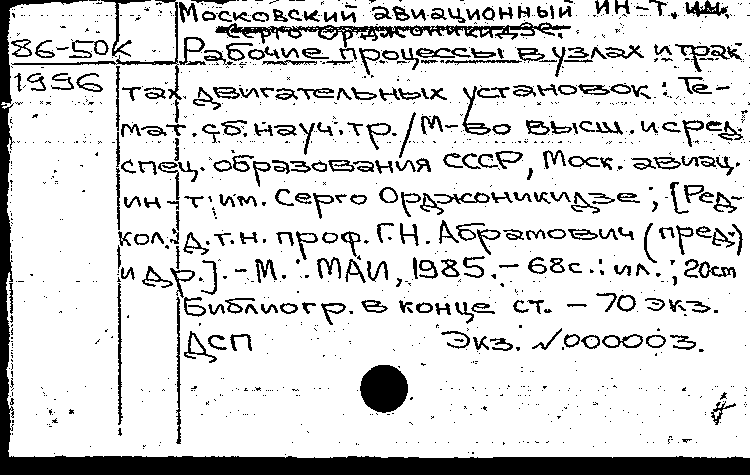 Московский авиационный ин-т. им.
Серго Орджоникидзе.
86-50К Рабочие процессы в узлах и трак
1996 тах двигательных установок: Те-
мат. сб. науч. тр. / М-во высш. и сред.
спец. образования СССР, Моск. авиац.
ин-т им. Серго Орджоникидзе; [Ред-
кол.: д.т.н. проф. Г.Н. Абрамович (пред.)
и др.]. - М.: МАИ, 1985. - 68с.: ил.; 20см
Библиогр. в конце ст. - 70 экз.
ДСП Экз. №000003.